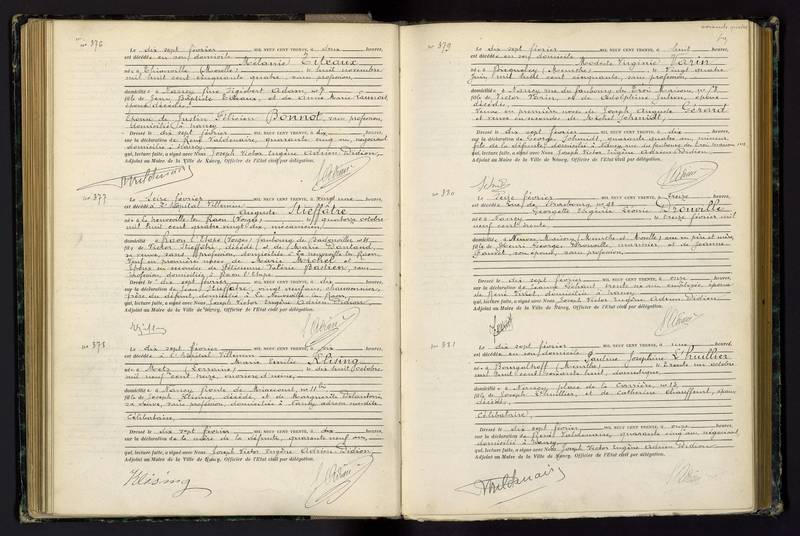 N° 376
Le dix sept février MIL NEUF CENT TRENTE, à deux heures,
est décédée en son domicile Mélanie
née à Thionville (Moselle) le huit novembre
mil huit cent cinquante quatre, sans profession,
domiciliée à Nancy Rue Sigisbert Adam, n° 7
fille de Jean Baptiste et de Anne Marie
époux décédés;
Epouse de Justin Félicien Bonnot, sans profession,
domicilié à Nancy
Dressé le dix sept février à dix heures,
sur la déclaration de René Valdenaire, quarante cinq ans, négociant
domicilié à Nancy
qui, lecture faite, a signé avec Nous Joseph Victor Eugène Adrien Didion,
Adjoint au Maire de la Ville de Nancy, Officier de l'Etat civil par délégation.
N° 377
Le seize février à vingt une heures,
est décédé à l'Hôpital Villemin Auguste Stieffatre
né à La Neuveville les Raon (Vosges) le quatorze octobre
mil huit cent quatre vingt dix, mécanicien,
domicilié à Raon l'Etape (Vosges) faubourg de
fils de Victor Stieffatre, décédé, et de Marie
sa veuve, sans profession, domiciliée à La Neuveville les Raon.
Veuf en premières noces de Marie Michel et
Epoux en secondes de Valérie sans
profession, domiciliée à Raon l'Etape
Dressé le dix sept février
sur la déclaration de Stieffatre, vingt neuf ans,
frère du défunt, domicilié à La Neuveville les Raon,
qui, lecture faite, a signé avec Nous Joseph Victor Eugène Adrien Didion,
Adjoint au Maire de la Ville de Nancy, Officier de l'Etat civil par délégation.
N° 378
Le dix sept février MIL NEUF CENT TRENTE, à six heures,
est décédée à l'Hôpital Villemin Marie Emilie Klising
née à Metz (Lorraine) le dix huit octobre
mil neuf cent onze, ouvrière d'usine,
domiciliée à Nancy Route de Mirecourt, n° 11 bis
fille de Joseph Klising, décédé, et de Marguerite
sa veuve, sans profession, domiciliée à Nancy adresse susdite
Célibataire,
Dressé le dix sept février à dix heures,
sur la déclaration de la mère de la défunte, quarante neuf ans,
qui, lecture faite, a signé avec Nous Joseph Victor Eugène Adrien Didion
Adjoint au Maire de la Ville de Nancy, Officier de l'Etat civil par délégation.
Klising
N° 379
Le dix sept février MIL NEUF CENT TRENTE, à huit heures,
est décédée en son domicile Modeste Virginie Varin
née à (Meurthe) le vingt quatre
juin mil huit cent cinquante, sans profession,
domiciliée à Nancy rue du faubourg des Trois Maisons, n°
fille de Victor Varin, et de Adolphine Julien, époux
décédés,
Veuve en premières noces de Joseph Auguste Gérard
et veuve en secondes de Michel Schmidt,
Dressé le dix sept février à dix heures,
sur la déclaration de Georges Schmidt, quarante quatre ans,
fils de la défunte, domicilié à Nancy rue du faubourg des Trois Maisons
qui, lecture faite, a signé avec Nous Joseph Victor Eugène Adrien Didion
Adjoint au Maire de la Ville de Nancy, Officier de l'Etat civil par délégation.
N° 380
Le seize février MIL NEUF CENT TRENTE, à treize heures,
est décédée rue de Strasbourg n° Georgette Eugénie Léonie Drouville
née à Nancy le treize février mil
neuf cent trente
domiciliée à Maisons (Meurthe et Moselle) avec ses père et mère,
fille de Georges Drouville, et de Jeanne
son épouse, sans profession.
Dressé le dix sept février à onze heures,
sur la déclaration de trente six ans, employée, épouse
de René domiciliée à Nancy
qui, lecture faite, a signé avec Nous Joseph Victor Eugène Adrien Didion
Adjoint au Maire de la Ville de Nancy, Officier de l'Etat civil par délégation.
N° 381
Le dix sept février MIL NEUF CENT TRENTE, à une heures,
est décédée en son domicile Pauline Joséphine L'huillier
née à (Meurthe) le trente un octobre
mil huit cent soixante huit, domestique,
domiciliée à Nancy place de la Carrière, n° 13
fille de Joseph L'huillier, et de Catherine époux
décédés,
Célibataire,
Dressé le dix sept février à onze heures,
sur la déclaration de René Valdenaire, quarante cinq ans, négociant
domicilié à Nancy
qui, lecture faite, a signé avec Nous Joseph Victor Eugène Adrien Didion
Adjoint au Maire de la Ville de Nancy, Officier de l'Etat civil par délégation.